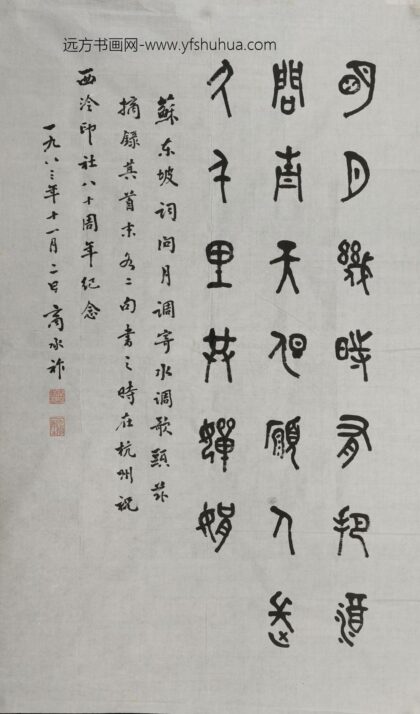 远方书画网-www.yfshuhua.com
明月幾時有把酒
問青天但願人長
久千里共嬋娟
蘇东坡词问月调寄水调歌頭兹
摘録其首末各二句書之時在杭州祝
西泠印社八十周年纪念
一九八三年十一月二日商承祚